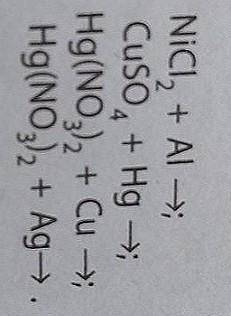 NiCl₂ + Al →;
CuSO₄ + Hg →;
Hg(NO₃)₂ + Cu →;
Hg(NO₃)₂ + Ag→.